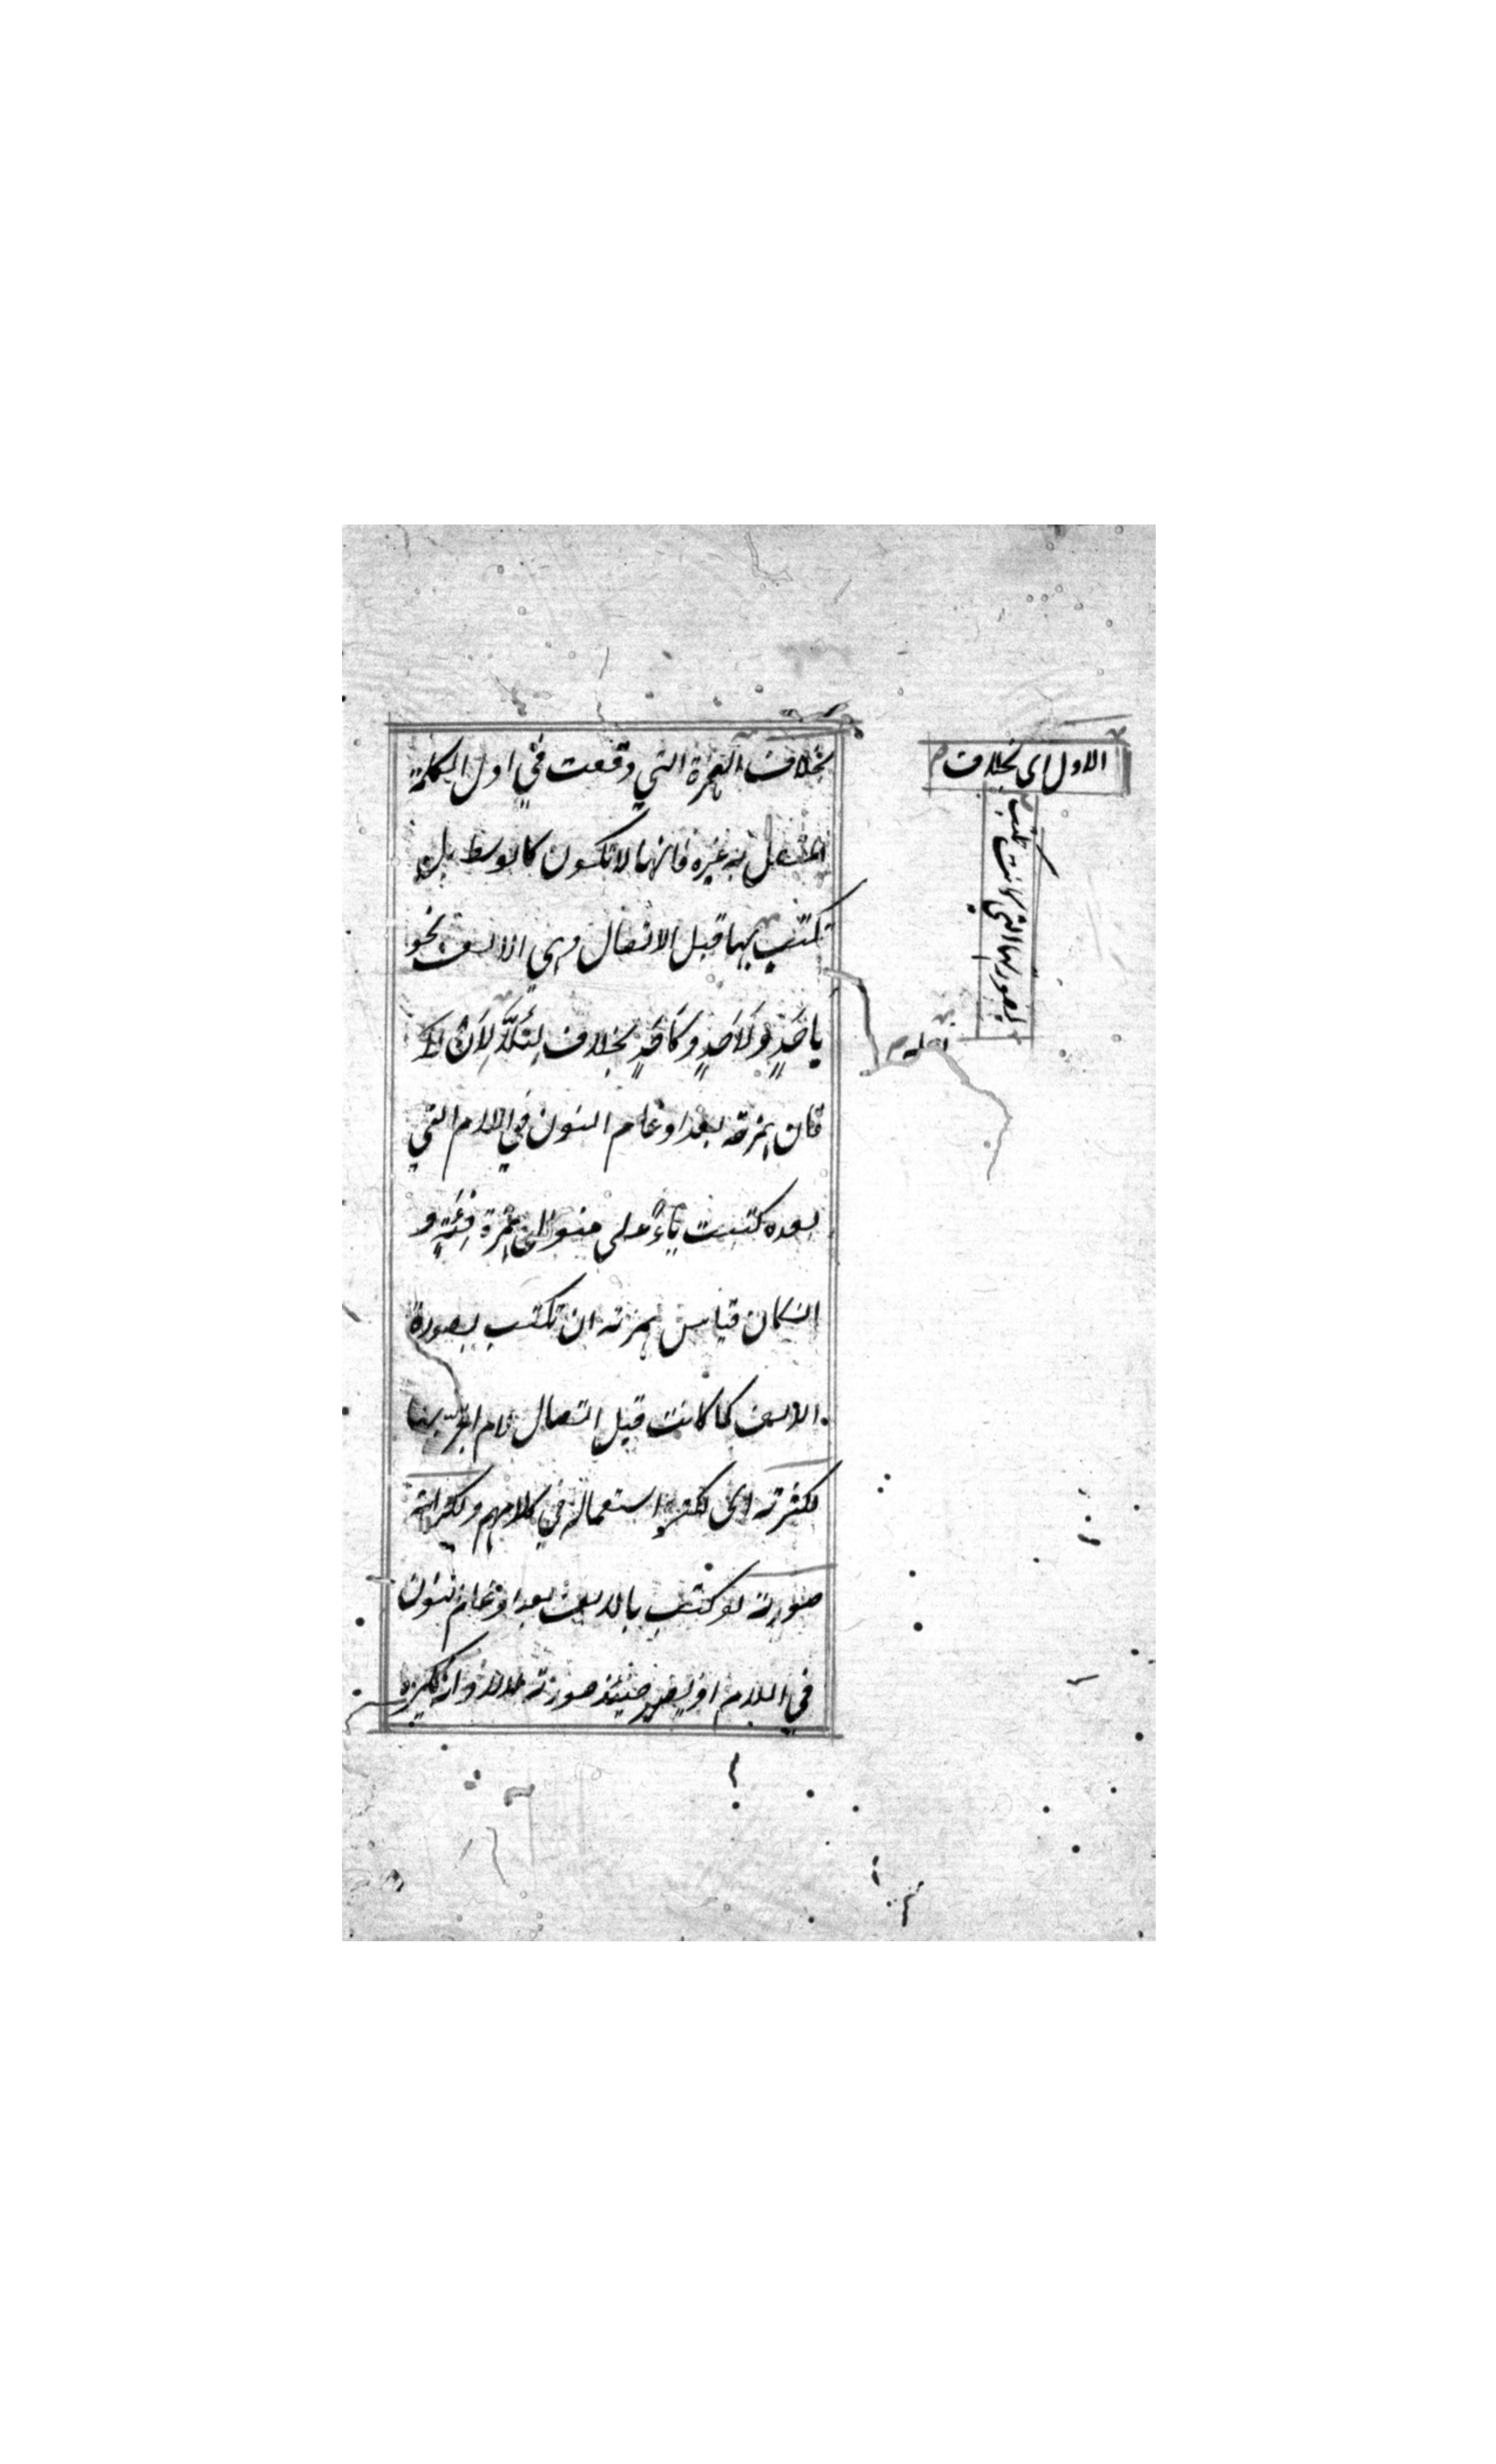 الاول اى بخلاف
بخلاف الهمزة التي وقعت في اول الكلمة
المتصل به غيره فانها لا تكون كالوسط بل
تكتب بها قبل الاتصال وهي الالف نحو
باَحَدٍ ولَاَحَدٍ وكَاَحَدٍ بخلاف لِئَلَّا لِاَنْ لا
فان همزته بعد ادغام النون في اللام التي
بعده كتبت ياءً على منوال همزة فِئَةٍ و
ان كان قياس همزته ان تكتب بصورة
الالف كما كانت قبل اتصال لام الجر بها
لكثرته اى لكثرة استعماله في كلامهم ولكراهة
صورته لو كتب بالالف بعد ادغام نون
في اللام اذ يصير حينئذ صورته لالا وانه كريه
بصورتها التي كانت تكتب